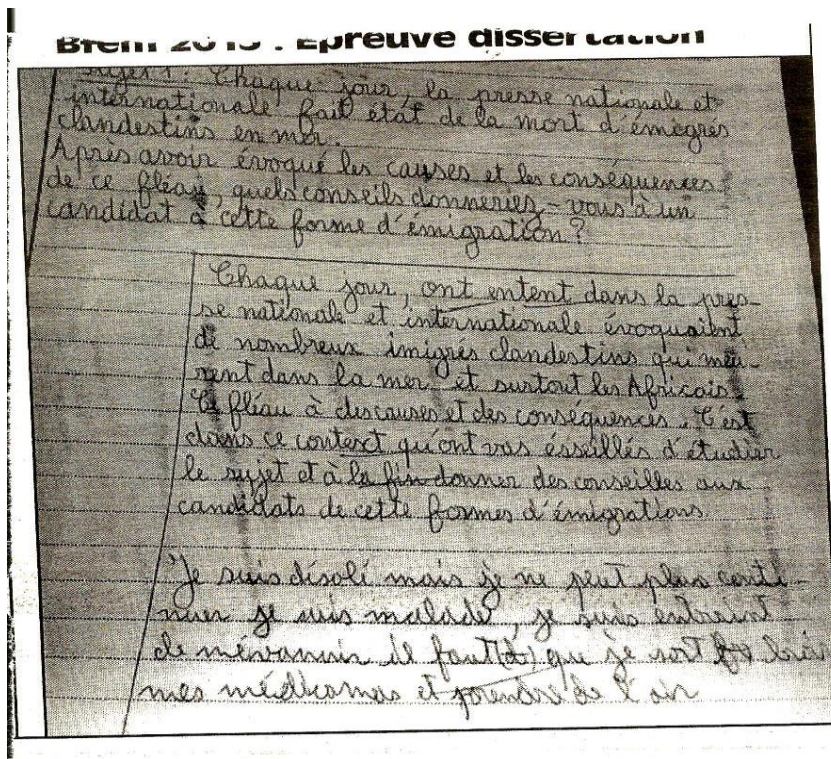 Brem 2015 : Epreuve dissertation
Sujet 1 : Chaque jour, la presse nationale et
internationale fait état de la mort d'émigrés
clandestins en mer.
Après avoir évoqué les causes et les conséquences
de ce fléau, quels conseils donneriez-vous à un
candidat à cette forme d'émigration?
Chaque jour, ont entent dans la pres-
se nationale et internationale évoquaient
de nombreux imigrés clandestins qui meu-
rent dans la mer et surtout les Africais.
Ce fléau à des causes et des conséquences. C'est
dans ce contexct qu'ont vas ésseillés d'étudier
le sujet et à la fin donner des conseilles aux
candidats de cette formes d'émigrations.
Je suis désolé mais je ne peut plus conti-
nuer je suis malade, je suis entraint
de mévanuir il faut(d) que je sort
mes médicamas et prendre de l'air